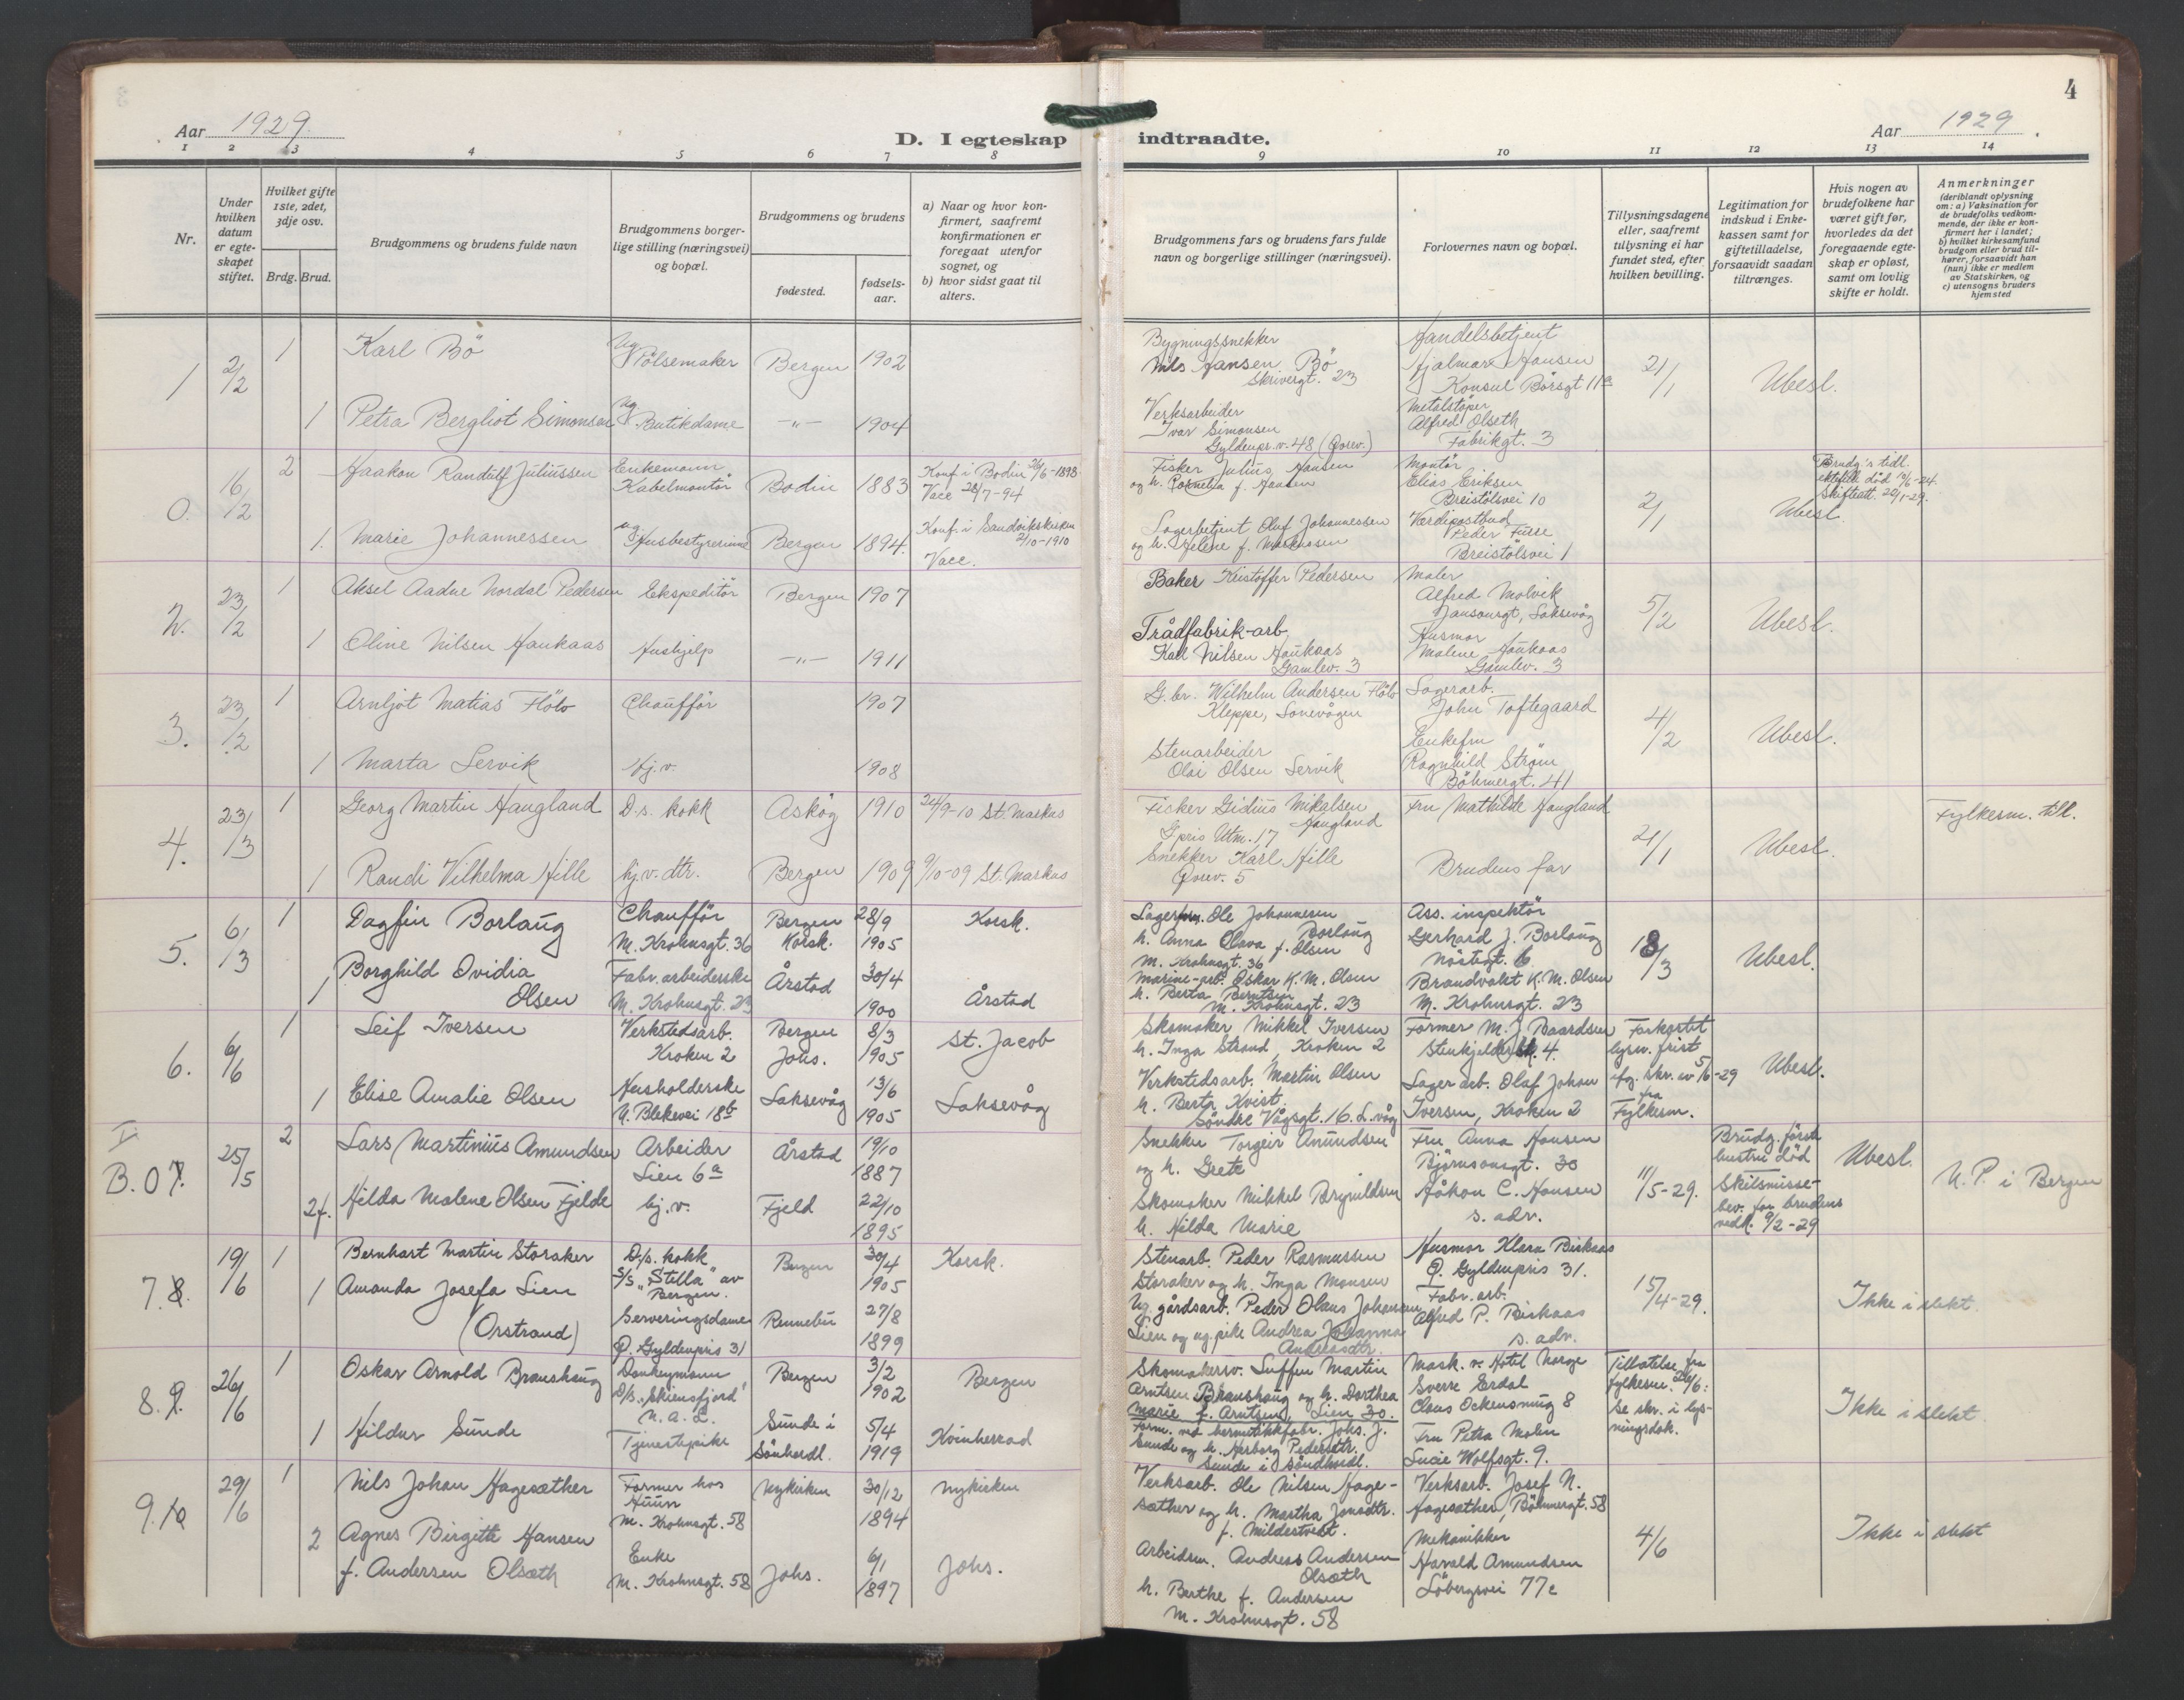 4
Aar 1929.
D. I egteskap indtraadte.
Aar 1929.
1 2 3 4 5 6 7 8 9 10 11 12 13 14
Nr.
Under hvilken datum er egteskapet stiftet.
Hvilket gifte 1ste, 2det, 3dje osv.
Brdg. Brud.
Brudgommens og brudens fulde navn
Brudgommens borgerlige stilling (næringsvei) og bopæl.
Brudgommens og brudens
fødested.
fødselsaar.
a) Naar og hvor konfirmert, saafremt konfirmationen er foregaat utenfor sognet, og
b) hvor sidst gaat til alters.
Brudgommens fars og brudens fars fulde navn og borgerlige stillinger (næringsvei).
Forlovernes navn og bopæl.
Tillysningsdagene eller, saafremt tillysning ei har fundet sted, efter hvilken bevilling.
Legitimation for indskud i Enkekassen samt for giftetilladelse, forsaavidt saadan tiltrænges.
Hvis nogen av brudefolkene har været gift før, hvorledes da det foregaaende egteskap er opløst, samt om lovlig skifte er holdt.
Anmerkninger
(deriblandt oplysning om: a) Vaksination for de brudefolks vedkommende, der ikke er konfirmert her i landet; b) hvilket kirkesamfund brudgom eller brud tilhører, forsaavidt han (hun) ikke er medlem av Statskirken, og c) utensogns bruders hjemsted
1 2/2 1 Karl Bö Ug. Pölsemaker Bergen 1902
Bygningssnekker
Nils Hansen Bö
Skrivergt. 23
Handelsbetjent
Hjalmar Hansen
Konsul Börsgt 11a
21/1 Ubesl.
1 Petra Bergliot Simonsen Ug. Butikdame -"- 1904
Verksarbeider
Ivar Simonsen
Gyldenpr.v. 48 (Övrev.)
Metalstöper
Alfred Olseth
Fabrikgt. 3
0. 16/2 2 Haakon Randulf Juliussen Enkemann Kabelmontör Bodin 1883
Konf. i Bodin 26/6-1898
Vacc 28/7-94
Fisker Julius Hansen
og h. Cornelia f. Hansen
Montör
Elias Eriksen
Breistölsvei 10
2/1 Ubesl.
Brudg's tidl. ektefelle död 10/6-24. Skifteatt. 20/1-29.
1. Marie Johannessen ug. Husbestyrerinne Bergen 1894.
Konf. i Sandvikskirken 2/10-1910
Vacc.
Lagerbetjent Oluf Johannessen
og h. Helene f. Markussen
Verdipostbud
Peder Fure
Breistölsvei 1
2. 23/2 1 Aksel Aadne Nordal Pedersen Ekspeditör Bergen 1907
Baker Kristoffer Pedersen
Maler
Alfred Molvik
Jansonsgt, Laksevåg
5/2 Ubesl.
1 Oline Nilsen Haukaas Hushjelp -"- 1911
Trådfabrik-arb.
Karl Nilsen Haukaas
Gamlev. 3
Husmor
Malene Haukaas
Gamlev. 3
3. 23/2 1 Arnljot Matias Flölo Chaufför 1907
G.br. Wilhelm Andersen Flölo
Kleppe, Lonevågen
Lagerarb.
John Toftegaard
4/2 Ubesl.
1 Marta Lervik Hj.v. 1908
Stenarbeider
Olai Olsen Lervik
Enkefru
Ragnhild Ström
Böhmergt. 41
4. 23/3 1 Georg Martin Haugland D.s. kokk Askög 1910 24/9-10 St. Markus
Fisker Gidius Mikalsen Haugland
G.pris Utm. 17
Fru Mathilde Haugland
21/1 Ubesl. Fylkesm. till.
1 Randi Vilhelma Hille hj.v. dtr. Bergen 1909 9/10-09 St. Markus
Snekker Karl Hille
Övrev. 5
Brudens far
5. 6/3 1 Dagfin Borlaug Chaufför M. Krohnsgt. 36 Bergen Korsk. 28/9 1905 Korsk.
Lagerfrm. Ole Johannesen Borlaug
h. Anna Olava f. Olsen
M. Krohnsgt. 36
Ass. inspektör
Gerhard J. Borlaug
Nöstegt. 6
18/3 Ubesl.
1 Borghild Ovidia Olsen Fabr. arbeiderske M. Krohnsgt. 23 Årstad 30/4 1900 Årstad
Marine-arb. Oskar K.M. Olsen
h. Berta Berntsen
M. Krohnsgt. 23
Brandvakt K.M. Olsen
M. Krohnsgt. 23
6. 6/6 1 Leif Iversen Verkstedsarb. Kroken 2 Bergen Johs. 8/3 1905 St. Jacob
Skomaker Mikkel Iversen
h. Inga Strand, Kroken 2
Former M.J. Baardsen
Stenkjeldersm. 4.
Forkortet lysn. frist ifg. skr. av 5/6-29 fra Fylkesm.
Ubesl.
1 Elise Amalie Olsen Husholderske N. Blekevei 18b Laksevåg 13/6 1905 Laksevåg
Verkstedsarb. Martin Olsen
h. Berta Kvist.
Söndre Vågsgt. 16. L.våg
Lagerarb. Olaf Johan
Iversen, Kroken 2
I
B. 07. 25/5 2 Lars Martinius Amundsen Arbeider Lien 6a Årstad 19/10 1887
Snekker Torgeir Amundsen
og h. Grete
Fru Anna Hansen
Björnsonsgt. 30
11/5-29.
Brudg. förste hustru död
Skilsmissebev. for brudens vedk. 9/2-29
Ubesl. N.P. i Bergen
2f. Hilda Malene Olsen Fjelde hj.v. Fjell 22/10 1895
Skomaker Mikkel Brynildsen
h. Hilda Marie
Håkon C. Hansen
s. adr.
7.8. 19/6 1 Bernhart Martin Storaker D/s. kokk S/s "Stella" av Bergen. Bergen 30/4 1905 Korsk.
Stenarb. Peder Rasmussen
Storaker og h. Inga Monsen
Husmor Klara Birkaas
Ö. Gyldenpris 31.
15/4-29. Ikke i slekt
1 Amanda Josefa Lien (Orstrand) Serveringsdame Ö. Gyldenpris 31 Rennebu 27/8 1899
Ug. gårdsarb. Peder Olaus Johansen
Lien og ug. pike Andrea Johanna
Andreasdtr.
Fabr. arb.
Alfred P. Birkaas
s. adr.
8.9. 26/6 1 Oskar Arnold Braushaug Donkeymann D/s. "Skiensfjord" N.A.L. Bergen 3/2 1902 Bergen
Skomakersv. Suffen Martin
Arntsen Braushaug og h. Dorthea
Marie f. Arntsen, Lien 30.
Mask. v. Hotel Norge
Sverre Erdal
Claus Ockensmug 8
Tillatelse fra fylkesm. 26/6: Se skr. i lysningsdok.
Ikke i slekt
1 Hildur Sunde Tjenestepike Sunde i Sönhordl. 5/4 1919 Kvinherred
Form. ved hermetikkfabr. Johs. J.
Sunde og h. Herborg Pedersdtr.
Sunde i Söndhordl.
Fru Petra Molin
Lucie Wolfsgt. 9.
9.10 29/6 1 Nils Johan Hagesæther Former hos Huun M. Krohnsgt. 58 Nykirken 30/12 1894 Nykirken
Verksarb. Ole Nilsen Hage-
sæther og h. Martha Jonsdtr.
f. Mildestveit.
Verksarb. Josef N.
Hagesæther, Böhmergt. 58
4/6 Ikke i slekt
2 Agnes Birgitte Hansen f. Andersen Olsæth Enke M. Krohnsgt. 58 Johs. 6/1 1897 Johs.
Arbeidsm. Andreas Andersen
Olsæth
h. Berthe f. Andersen
M. Krohnsgt. 58
Mekanikker
Harald Amundsen
Löbergsvei 77c